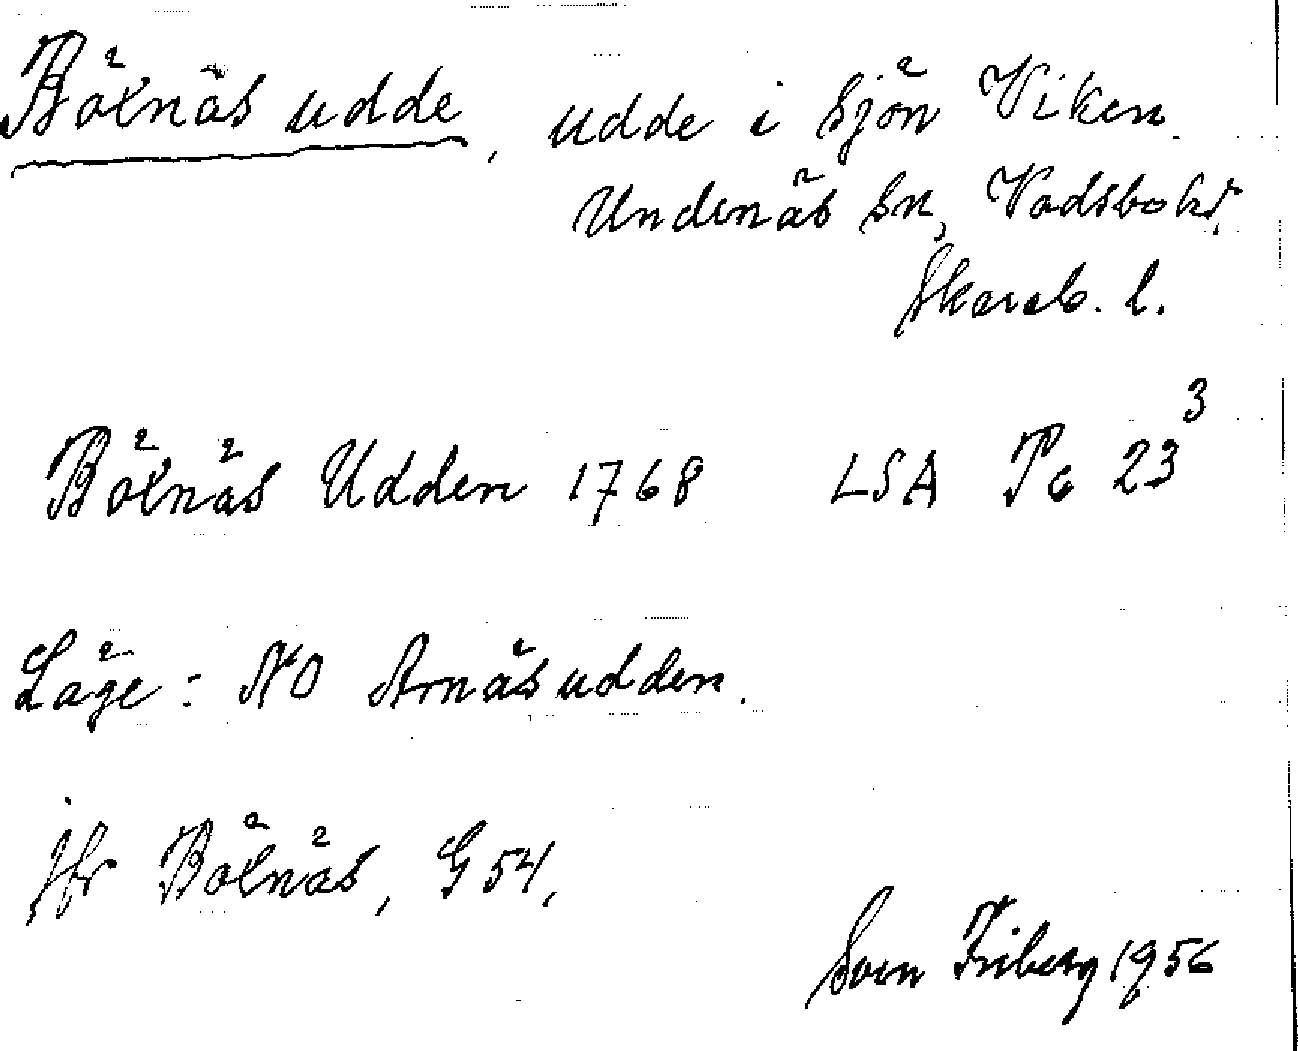 Bölnäs udde, udde i sjön Viken.
Undenäs sn, Vadsbo hd.
Skarab. l.
Bölnäs Udden 1768 LSA P6 23³
Läge: NO Arnäsudden.
Jfr Bölnäs, G 54,
Sven Friberg 1956